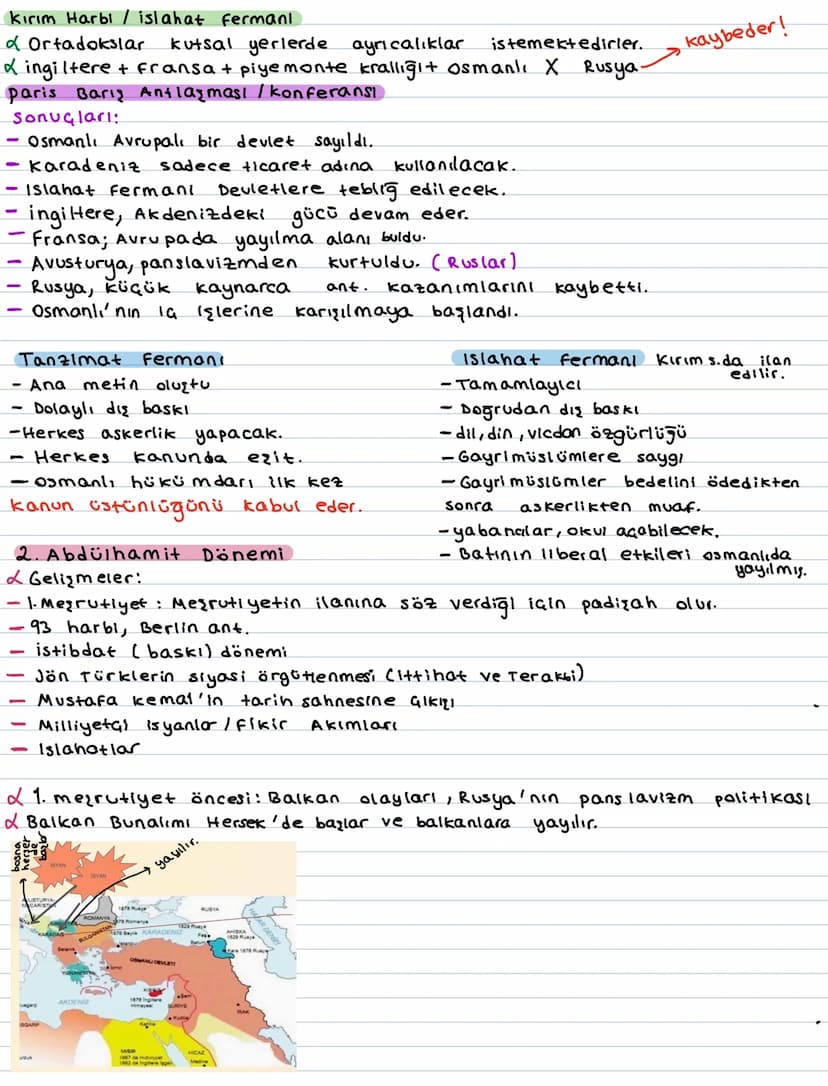 Kırım Harbi / islahat fermanı
α Ortadokslar kutsal yerlerde ayrıcalıklar istemektedirler.
kaybeder!
α ingiltere + Fransa + piyemonte krallığı + osmanlı X Rusya
paris Barış Antlaşması / konferansı
sonuçları:
- osmanlı Avrupalı bir devlet sayıldı.
- Karadeniz sadece ticaret adına kullanılacak.
- Islahat Fermanı Devletlere tebliğ edilecek.
- ingiltere, Akdenizdeki gücü devam eder.
- Fransa; Avrupada yayılma alanı buldu.
- Avusturya, panslavizmden kurtuldu. (Ruslar)
- Rusya, küçük kaynarca ant. kazanımlarını kaybetti.
- Osmanlı'nın iç işlerine karışılmaya başlandı.
Tanzimat Fermanı
- Ana metin oluştu
- Dolaylı dış baskı
- Herkes askerlik yapacak.
- Herkes kanunda eşit.
- osmanlı hükümdarı ilk kez
kanun üstünlüğünü kabul eder.
Islahat Fermanı Kırım s.da ilan
edilir.
- Tamamlayıcı
- Doğrudan dış baskı
- dil, din, vicdan özgürlüğü
- Gayrimüslümlere saygı
- Gayrimüslümler bedelini ödedikten
sonra askerlikten muaf.
- yabancılar, okul açabilecek.
- Batının liberal etkileri osmanlıda
yayılmış.
2. Abdülhamit Dönemi
α Gelişmeler:
- 1. Meşrutiyet : Meşrutiyetin ilanına söz verdiği için padişah olur.
- 93 harbi, Berlin ant.
- istibdat (baskı) dönemi
- Jön Türklerin siyasi örgütlenmesi (ittihat ve Terakki)
- Mustafa kemal'in tarih sahnesine çıkışı
- Milliyetçi isyanlar / Fikir Akımları
- Islahatlar
α 1. meşrutiyet öncesi: Balkan olayları, Rusya'nın panslavizm politikası
α Balkan Bunalımı Hersek'de başlar ve balkanlara yayılır.
bosna
herşer
de
başlar
yayılır.
İSYAN
İSYAN
ROMANYA
1878 Rusya
RUSYA
1878 Romanya
1829 Rusya
BULGARİSTAN
KARADENİZ
AHISKA
1829 Rusya
HAZAR DENİZİ
KARADAĞ
Batum
Kars 1878 Rusya
Selanik
OSMANLI DEVLETİ
İzmir
YUNANİSTAN
AKDENİZ
1878 İngiltere
himayesi
SURİYE
Şam
Kudüs
IRAK
Kahire
MISIR
1867 de hıdiviyet
1882 de İngiltere işgali
HİCAZ
Medine